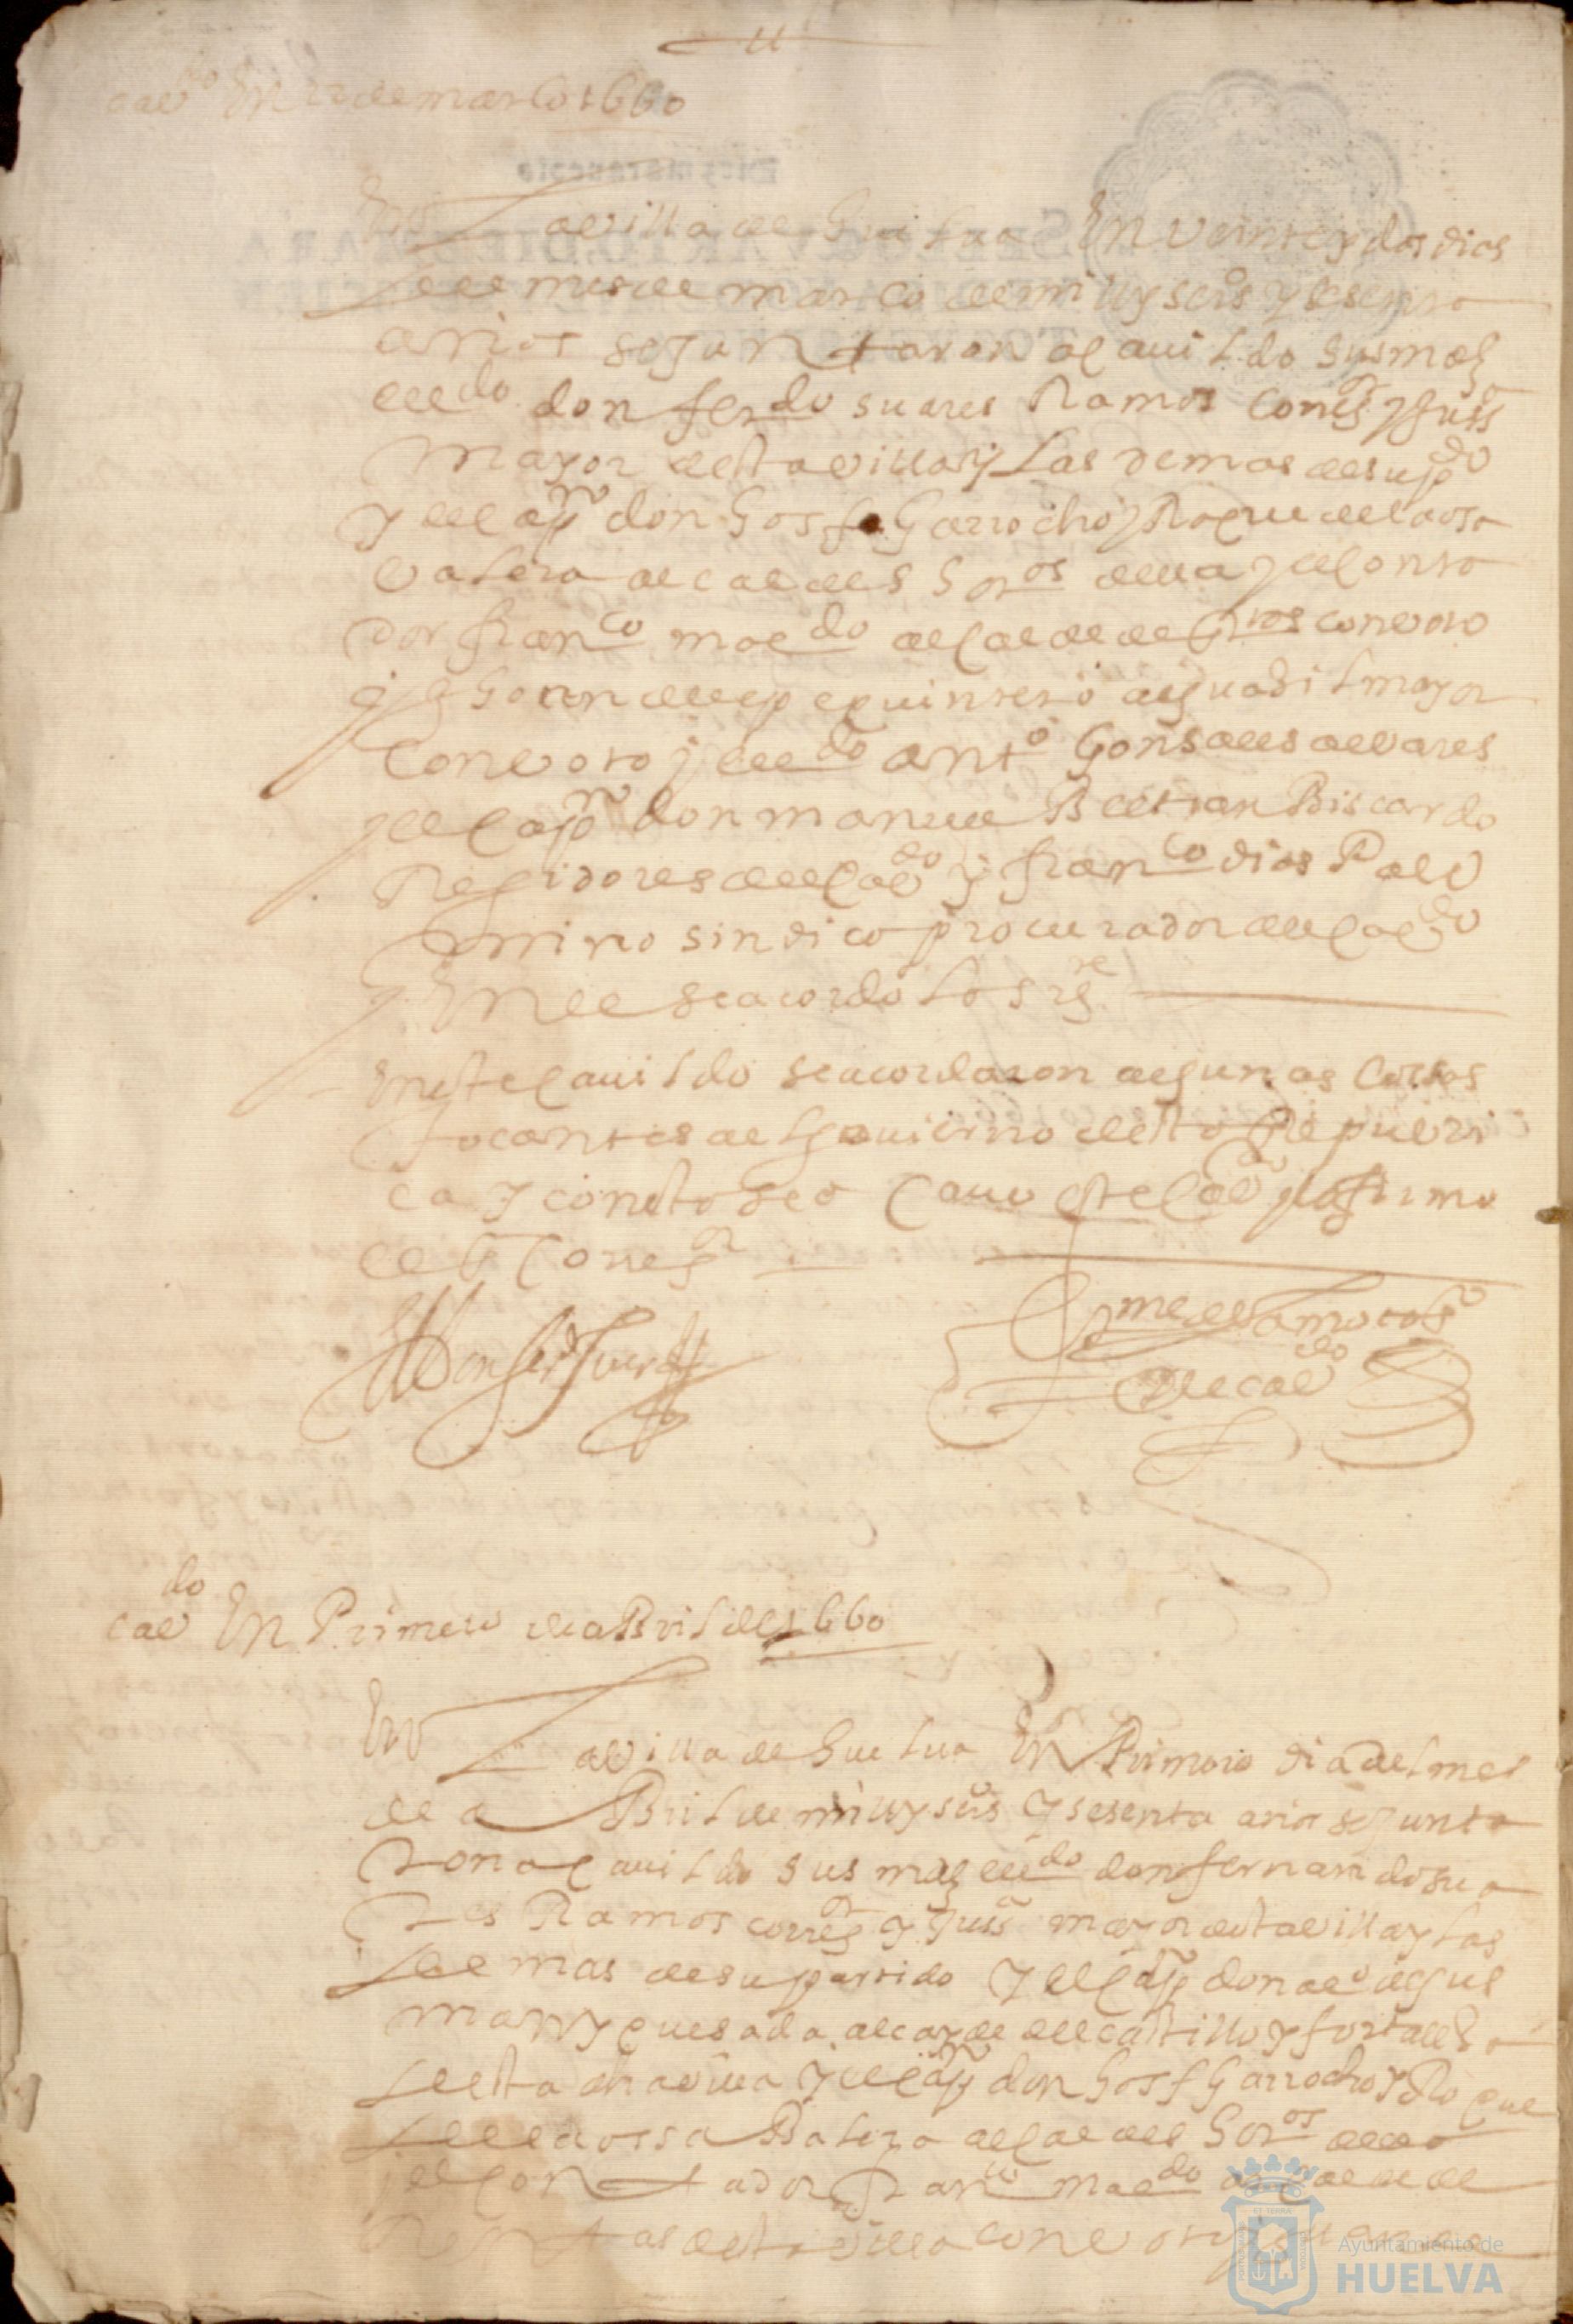 cavdo En 22 de março 1660
En La villa de Guelua En veinte y dos dias
del mes de março de mill y seiss y sesenta
años se juntaron a cauildo sus mds
el ldo don ferdo suares Ramos corregor y justa
mayor desta villa y las demas de su pdo
y el capn don Josf Garrocho y Roque de la osa
valera alcaldes hordios della y el conta
dor franco maldo alcalde de con voto
y Joan del quintero alguasil mayor
con voto y el ldo anto Gonsales alvares
y el capn don manuel Beltran Biscardo
Regidores del cavdo y franco dias Pal
omino sindico procurador del cavdo
y En el se acordo lo sigte
En este cauildo se acordaron algunas cossas
tocantes al gouierno desta Republi
ca y con esto se acauo este cavdo y lo firmo
el sr Corregor
cavdo
cavdo En Primero de aBril de 1660
En La villa de Guelua En Primero dia del mes
de aBril de mill y seiss y sesenta años se junta
ron a cauildo sus mds el ldo don fernando sua
res Ramos corregor y justa mayor desta villa y las
demas de su partido y el capn don alo de gus
man y quesada alcayde del castillo y fortalesa
desta dha villa y el capn don Josf Garrocho y Roque
de la ossa Balera alcaldes hordios della
y el contador franco maldo alcalde de
Rentas desta villa con voto y
Ayuntamiento de
HUELVA